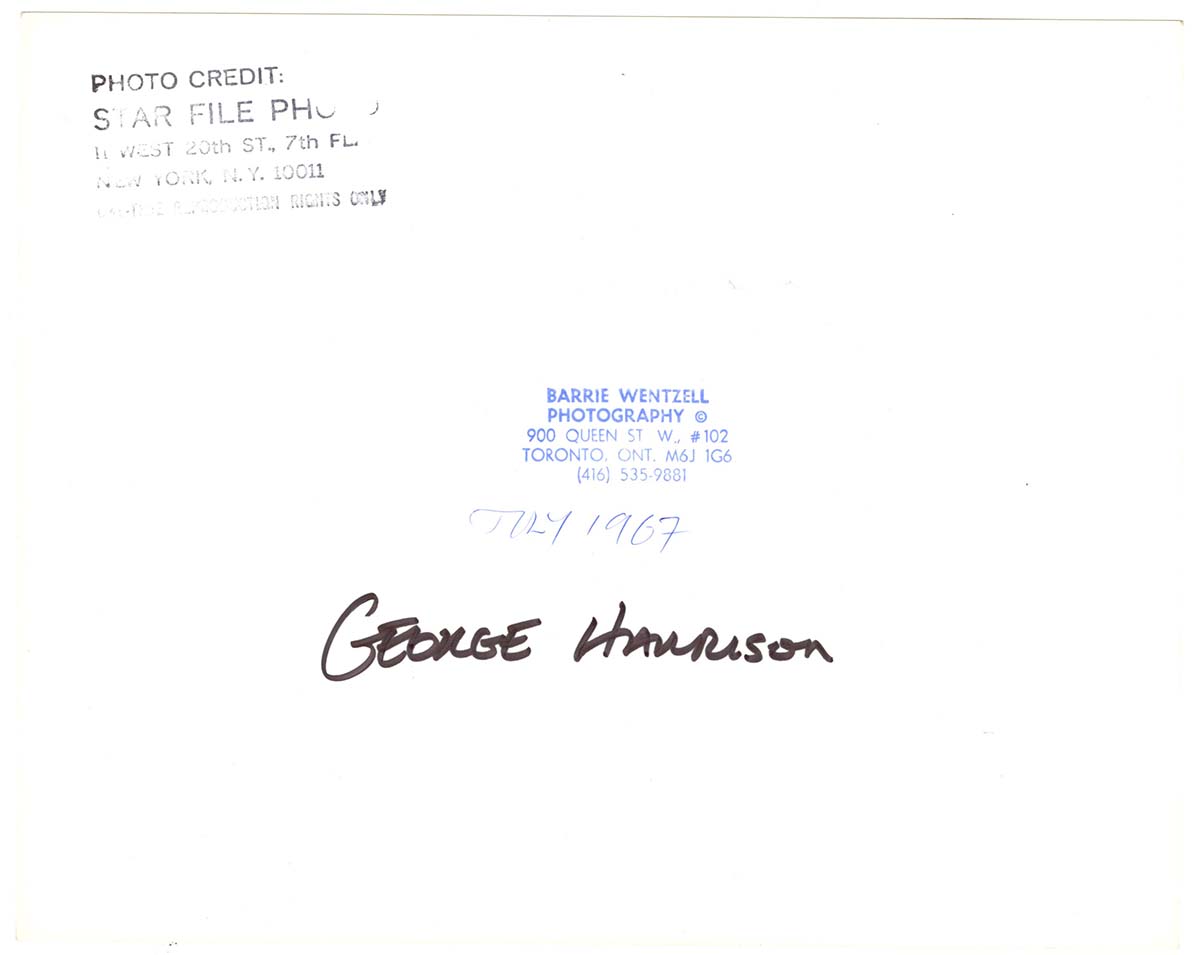 PHOTO CREDIT:
STAR FILE PHOTO
11 WEST 20th ST., 7th FL.
NEW YORK, N.Y. 10011
ONE-TIME REPRODUCTION RIGHTS ONLY
BARRIE WENTZELL
PHOTOGRAPHY ©
900 QUEEN ST W., #102
TORONTO, ONT. M6J 1G6
(416) 535-9881
JULY 1967
GEORGE HARRISON